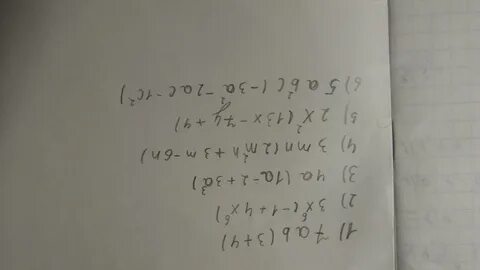 1) 7ab(3+4)
2) 3x⁶(-1+4x⁶)
3) 4a(1a-2+3a³)
4) 3mn(2m²n+3m-6n)
5) 2x²(13x-7y+4)
6) 5ab²c(-3a²-2ac-1c²)